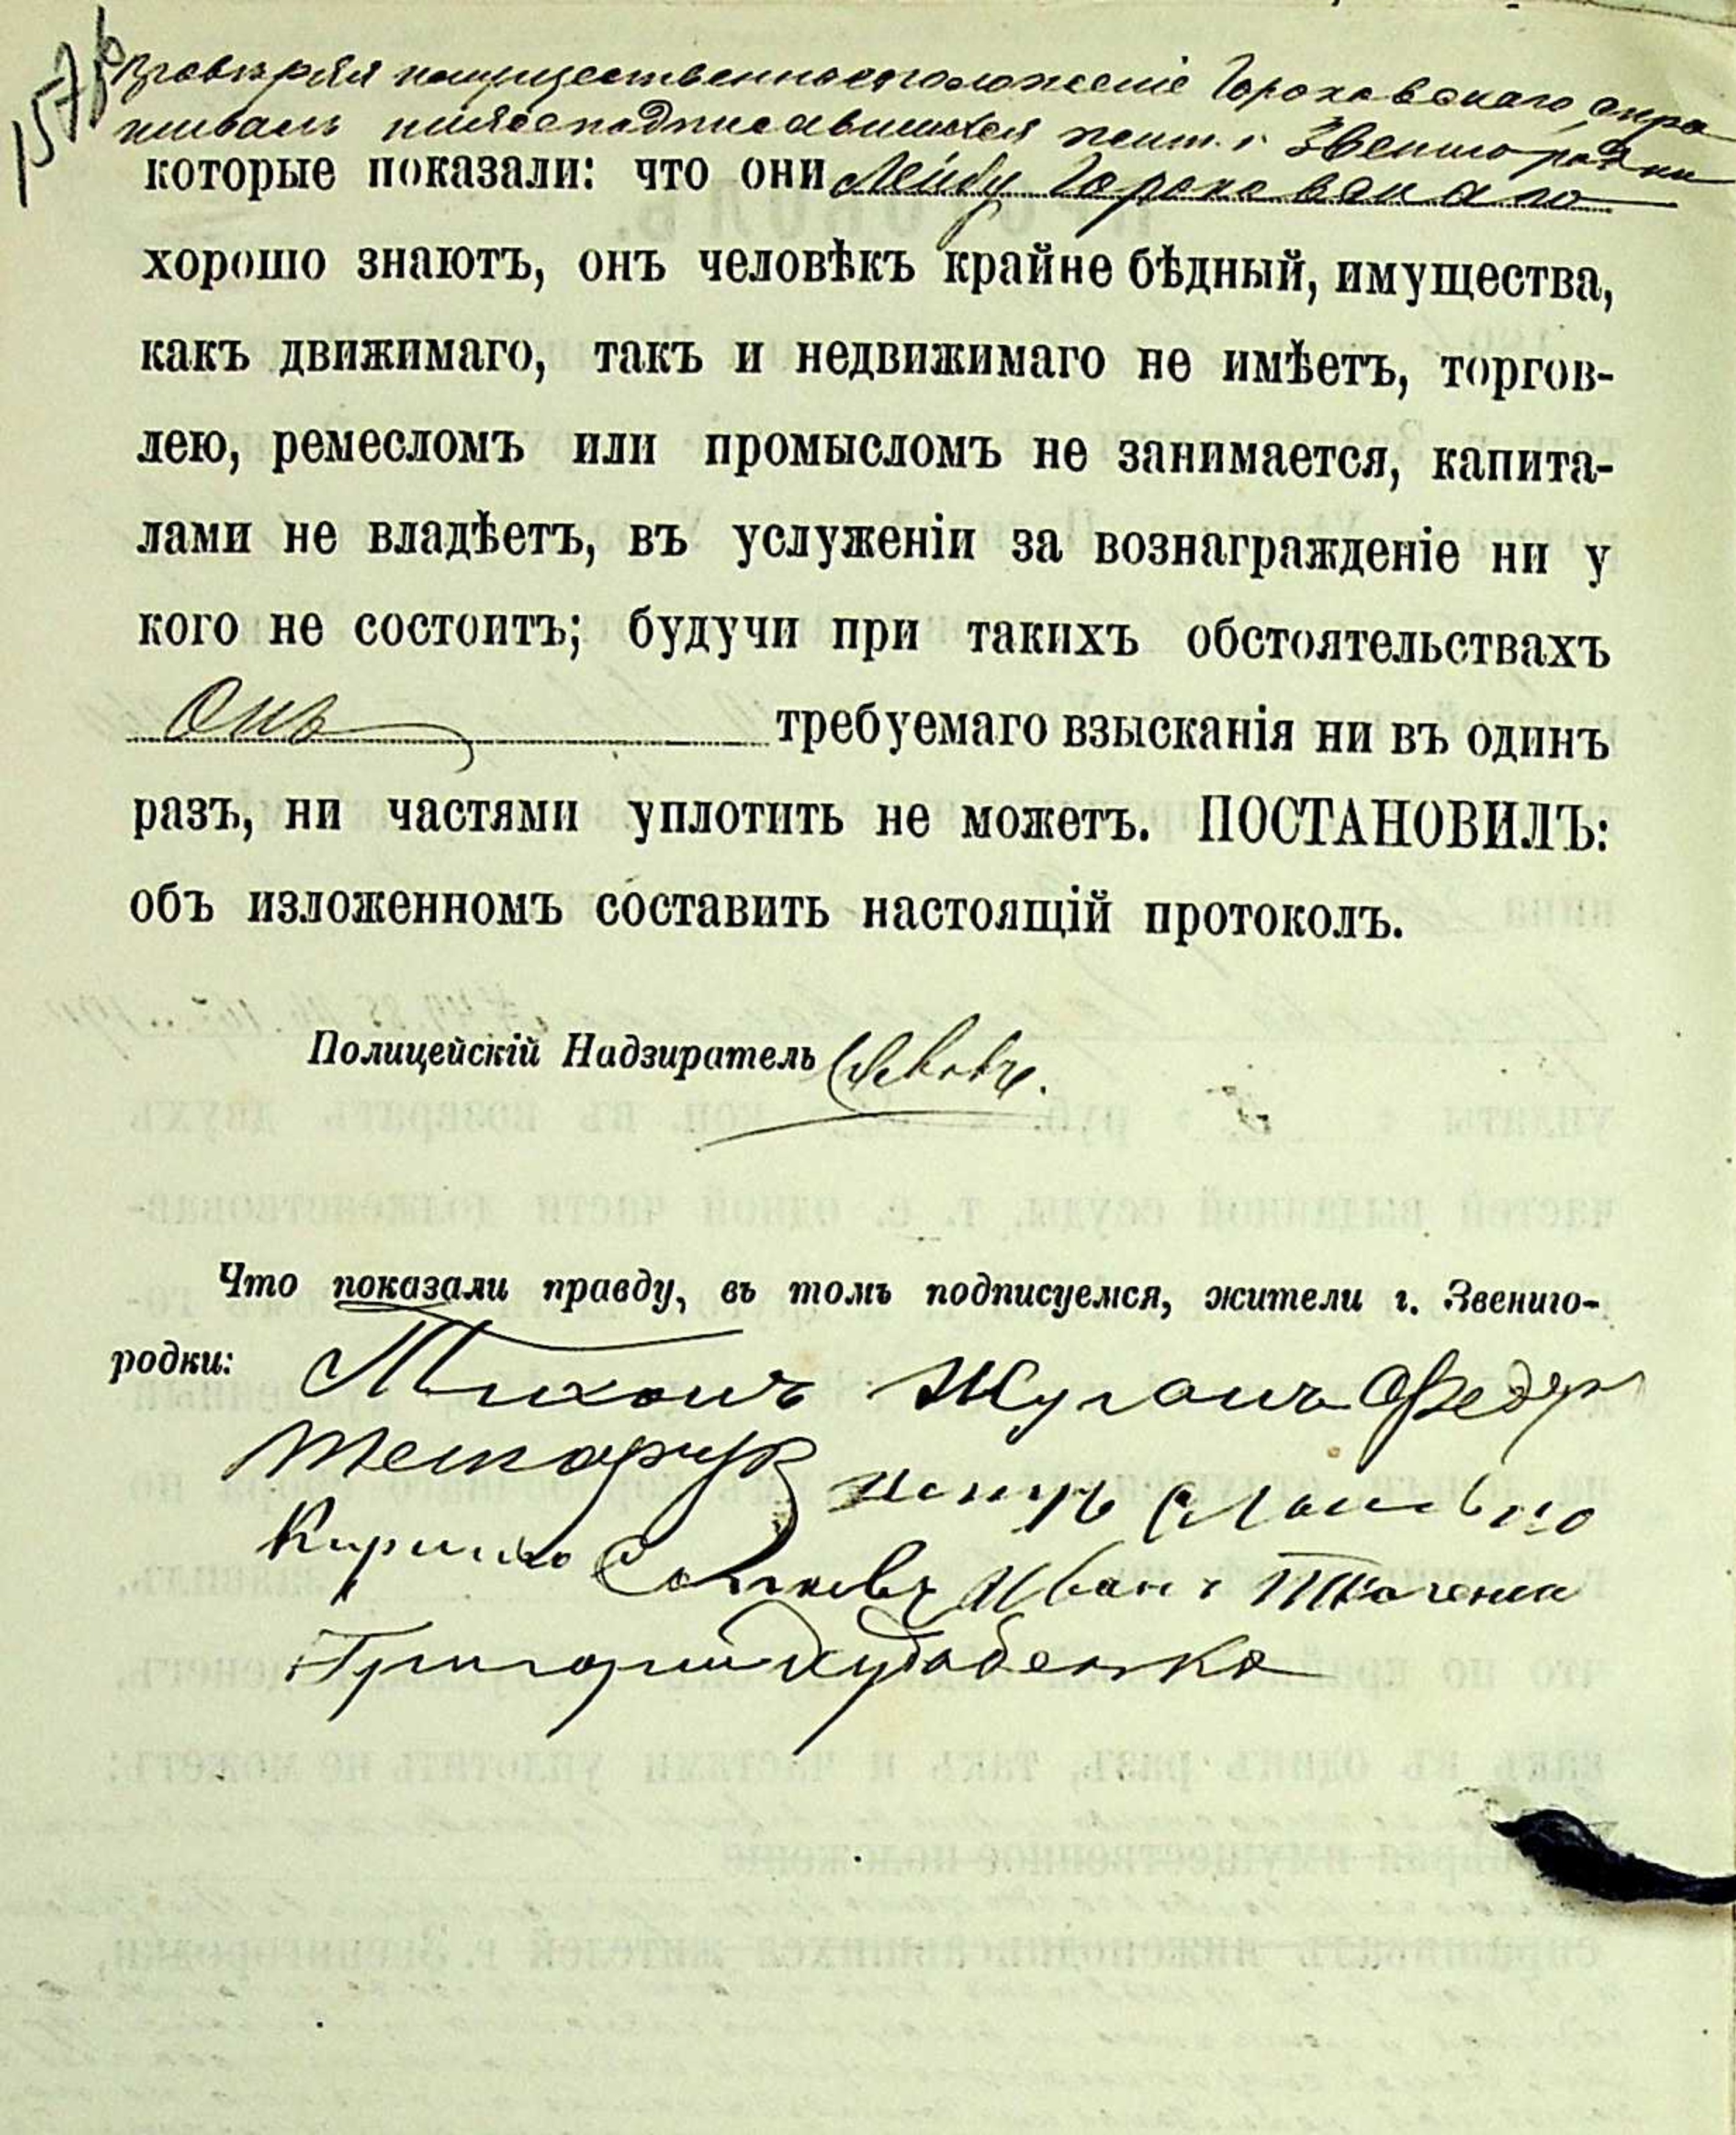 157об
Провѣряя имущественное положеніе Гороховскаго, спра
шивалъ нижеподписавшихся жит. г. Звенигородки
которые показали: что они Лейбу Гороховскаго
хорошо знаютъ, онъ человѣкъ крайне бѣдный, имущества,
какъ движимаго, такъ и недвижимаго не имѣетъ, торгов-
лею, ремесломъ или промысломъ не занимается, капита-
лами не владѣетъ, въ услуженіи за вознагражденіе ни у
кого не состоитъ; будучи при такихъ обстоятельствахъ
Онъ требуемаго взысканія ни въ одинъ
разъ, ни частями уплотить не можетъ. ПОСТАНОВИЛЪ:
объ изложенномъ составить настоящій протоколъ.
Полицейскій Надзиратель
Что показали правду, въ томъ подписуемся, жители г. Звениго-
родки: Тихонъ Жуганъ Федор
Кирило Иванъ Ткаченко
Григорий Худобенко